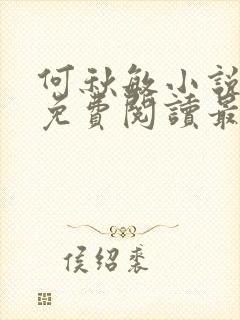 何秋敏小說
免費閱讀最
侯紹裘